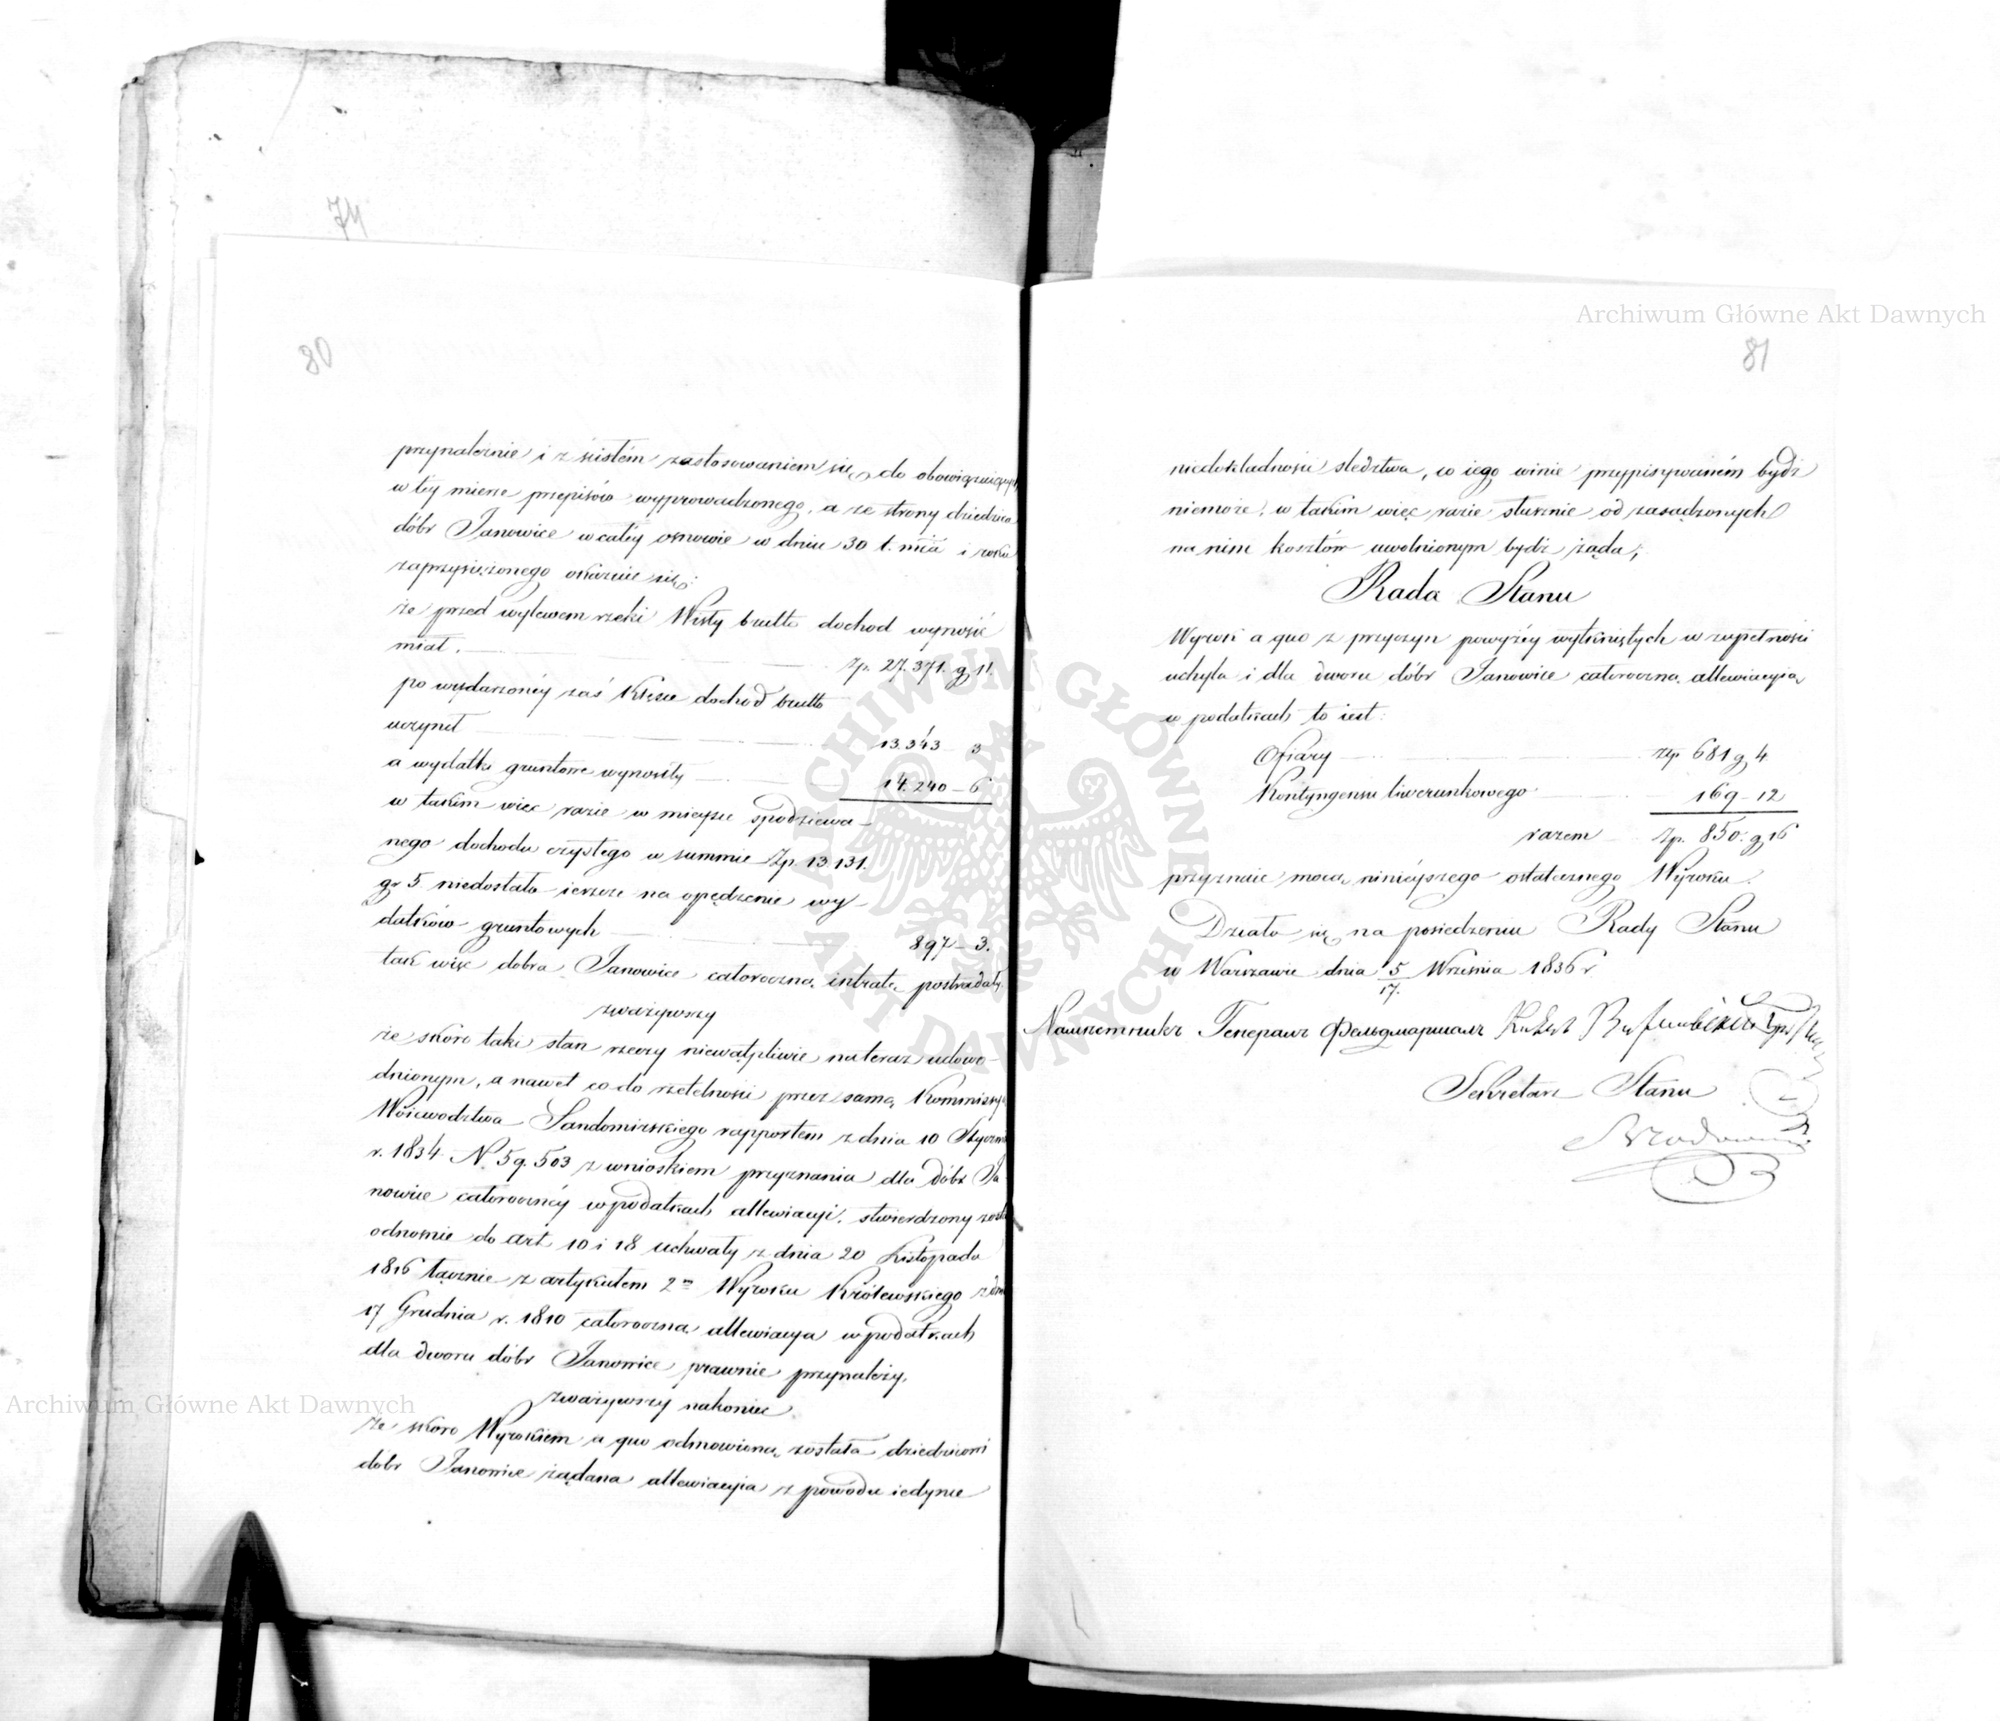 74
80
przynależnie i z ścisłém zastosowaniem się do obowiązujących
w téy mierze przepisów wyprowadzonego, a ze strony dziedzica
dóbr Janowice w całéy osnowie w dniu 30 t. mca i roku
zaprzysiężonego okazuie się:
że przed wylewem rzeki Wisły brutto dochod wynosić
miał. Zp. 27.371. g 11.
po wydarzonéy zaś klęsce dochod brutto
uczynił 13.343 3
a wydatki gruntowe wynosiły 14.240 – 6
w takim więc razie w mieysce spodziewa-
nego dochodu czystego w summie Zp. 13.131.
gr 5. niedostało ieszcze na opędzenie wy-
datków gruntowych 897 – 3.
tak więc dobra Janowice całoroczną intratę postradały.
zważywszy
że skoro taki stan rzeczy niewątpliwie na teraz udowo-
dnionym, a nawet co do rzetelności przez samą Kommissyą
Woiewodztwa Sandomirskiego rapportem z dnia 10 Stycznia
r. 1834 N. 59.503 z wnioskiem przyznania dla dóbr Ja
nowice całorocznéy w podatkach allewiacyi, stwierdzony został
odnośnie do art. 10 i 18 Uchwały z dnia 20 Listopada
1816 łącznie z artykułem 2m Wyroku Królewskiego z dnia
17 Grudnia r. 1810 całoroczna allewiacya w podatkach
dla dworu dóbr Janowice prawnie przynależy,
zważywszy nakoniec
że skoro Wyrokiem a quo odmowioną została dziedzicowi
dóbr Janowice żądana allewiacyia z powodu iedynie
81
niedokładności śledztwa, co iego winie przypisywaném bydź
niemoże, w takim więc razie słusznie od zasądzonych
na nim kosztów uwolnionym bydź żąda,
Rada Stanu
Wyrok a quo z przyczyn powyżéy wytkniętych w zupełności
uchyla i dla dworu dóbr Janowice całoroczną allewiacyią
w podatkach to iest:
Ofiary Zp. 681 g 4.
Kontyngensu liwerunkowego 169 – 12
razem Zp. 850. g 16
przyznaie mocą ninieyszego ostatecznego Wyroku.
Działo się na posiedzeniu Rady Stanu
w Warszawie dnia 5/17. Września 1836 r
Намѣстникъ Генералъ Фельдмаршалъ
Sekretarz Stanu
Archiwum Główne Akt Dawnych
Archiwum Główne Akt Dawnych
ARCHIWUM GŁÓWNE AKT DAWNYCH